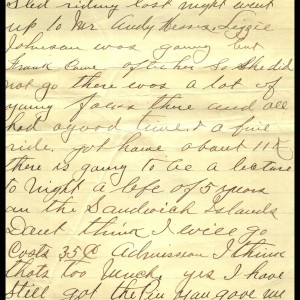 Sled riding last night went
up to Mr Andy Hess Lizzie
Johnson was going but
Frank Came after her So She did
not go there was a lot of
young folks there and all
had a good time & a fine
ride. got home about 11 Oc
there is going to be a lecture
to night a life of 5 years
on the Sandwich Islands
Dont think I will go
Costs 35¢ Admission I think
thats too much, yes I have
still got the Pin Man gave me